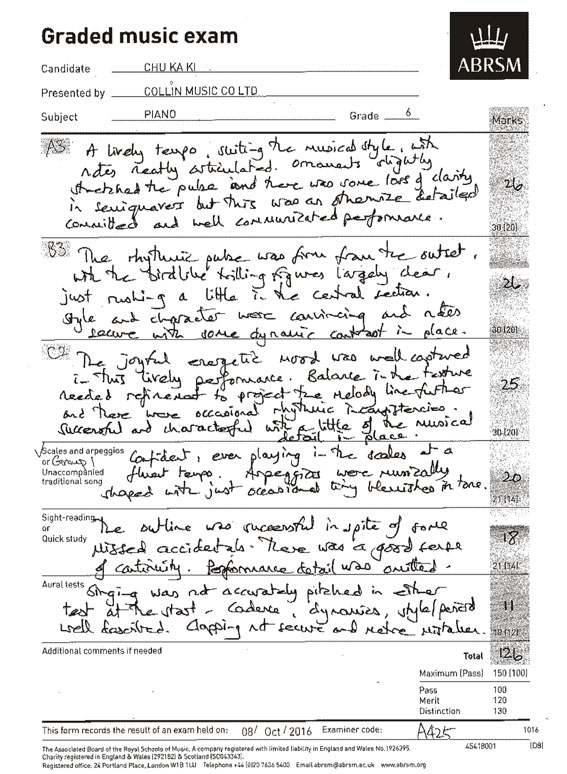 Graded music exam
ABRSM
Candidate CHU KA KI
Presented by COLLIN MUSIC CO LTD
Subject PIANO Grade 6
Marks
A3 A lively tempo, suiting the musical style, with
notes neatly articulated. Ornaments slightly
stretched the pulse and there was some loss of clarity
in semiquavers but this was an otherwise detailed
committed and well communicated performance.
26
30 (20)
B3 The rhythmic pulse was firm from the outset,
with the birdlike trilling figures largely clear,
just rushing a little in the central section.
Style and character were convincing and notes
secure with some dynamic contrast in place.
26
30 (20)
C2 The joyful energetic mood was well captured
in this lively performance. Balance in the texture
needed refinement to project the melody line further
and there were occasional rhythmic inconsistencies.
Successful and characterful with a little of the musical
detail in place.
25
30 (20)
Scales and arpeggios
or Group 1
Unaccompanied
traditional song
Confident, even playing in the scales at a
fluent tempo. Arpeggios were musically
shaped with just occasional tiny blemishes in tone.
20
21 (14)
Sight-reading
or
Quick study
The outline was successful in spite of some
missed accidentals. There was a good sense
of continuity. Performance detail was omitted.
18
21 (14)
Aural tests
Singing was not accurately pitched in either
test at the start - Cadence, dynamics, style/period
well described. Clapping not secure and metre mistaken.
11
18 (12)
Additional comments if needed
Total 126
Maximum (Pass) 150 (100)
Pass 100
Merit 120
Distinction 130
This form records the result of an exam held on: 08/ Oct/2016 Examiner code: A425 1016
The Associated Board of the Royal Schools of Music, A company registered with limited liability in England and Wales No.1926395. 45418001 (D8)
Charity registered in England & Wales (292182) & Scotland (SC043343).
Registered office: 24 Portland Place, London W1B 1LU Telephone +44 (0)20 7636 5400 Email abrsm@abrsm.ac.uk www.abrsm.org